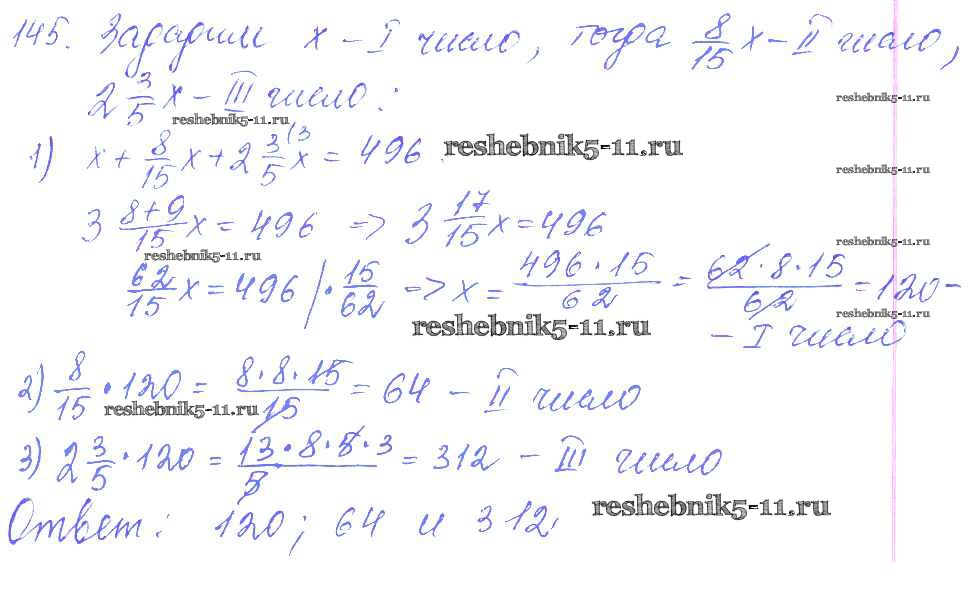 145. Зададим x – I число, тогда 8/15 x – II число,
2 3/5 x – III число:
reshebnik5-11.ru
reshebnik5-11.ru
1) x + 8/15 x + 2 3/5 (3 x = 496.
reshebnik5-11.ru
reshebnik5-11.ru
3 (8+9)/15 x = 496 => 3 17/15 x = 496
reshebnik5-11.ru
reshebnik5-11.ru
62/15 x = 496 | · 15/62 => x = (496 · 15)/62 = (62 · 8 · 15)/62 = 120 –
reshebnik5-11.ru
reshebnik5-11.ru
– I число
2) 8/15 · 120 = (8 · 8 · 15)/15 = 64 – II число
reshebnik5-11.ru
3) 2 3/5 · 120 = (13 · 8 · 5 · 3)/5 = 312 – III число
Ответ: 120; 64 и 312.
reshebnik5-11.ru